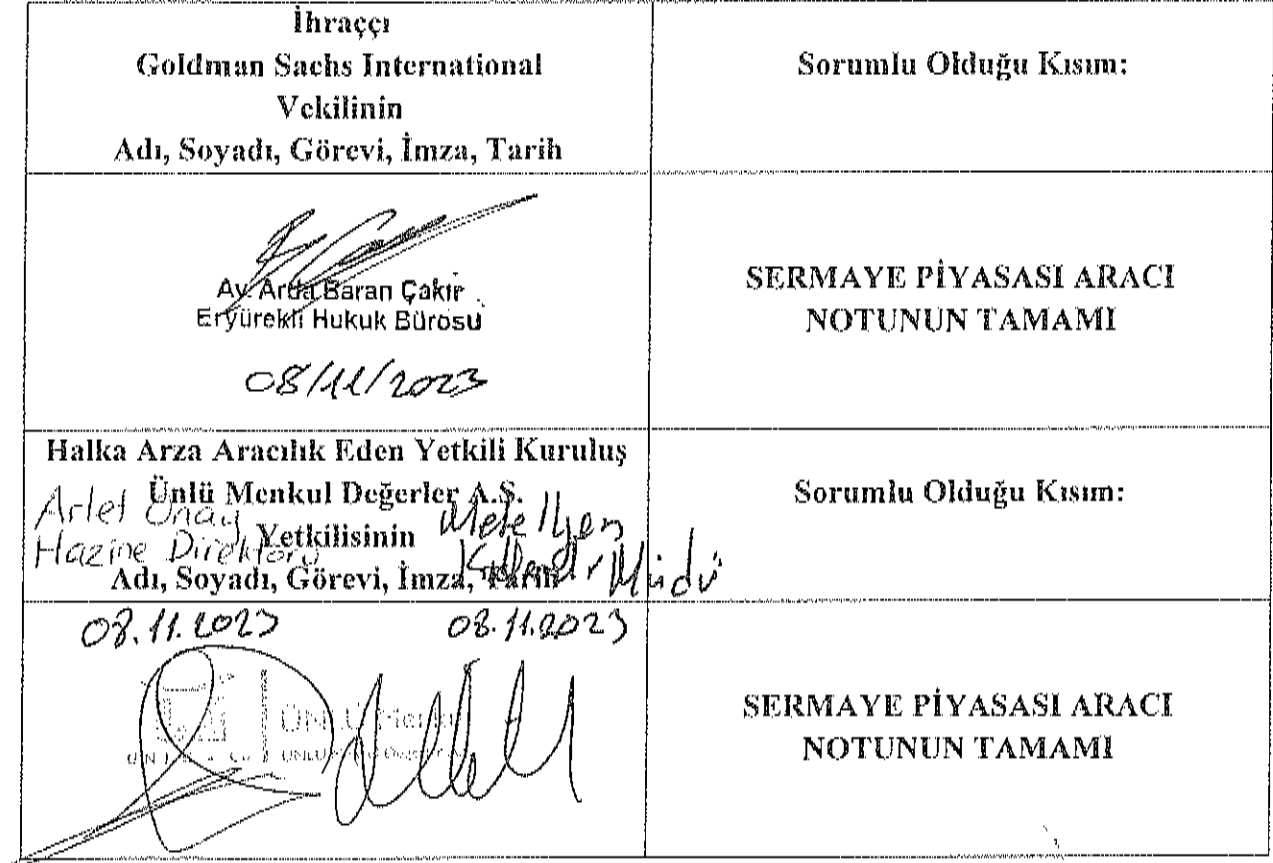 İhraççı
Goldman Sachs International
Vekilinin
Adı, Soyadı, Görevi, İmza, Tarih
Sorumlu Olduğu Kısım:
Av. Arda Baran Çakır
Eryürekli Hukuk Bürosu
08/11/2023
SERMAYE PİYASASI ARACI
NOTUNUN TAMAMI
Halka Arza Aracılık Eden Yetkili Kuruluş
Ünlü Menkul Değerler A.Ş.
Yetkilisinin
Adı, Soyadı, Görevi, İmza, Tarih
Arlet Ünay
Hazine Direktörü
Mete
Müdü
Sorumlu Olduğu Kısım:
08.11.2023
08.11.2023
ÜNLÜ Menkul
SERMAYE PİYASASI ARACI
NOTUNUN TAMAMI